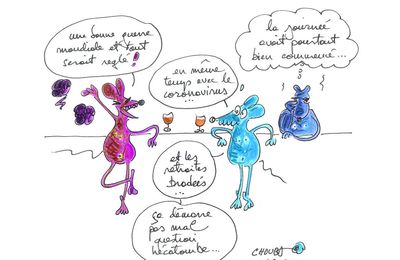 une bonne guerre
mondiale et tout
serait reglé !
en même
temps avec le
coronavirus...
la journée
avait pourtant
bien commencé...
et les
retraites
bradées...
ça démarre
pas mal
question
hécatombe...
CHOUB